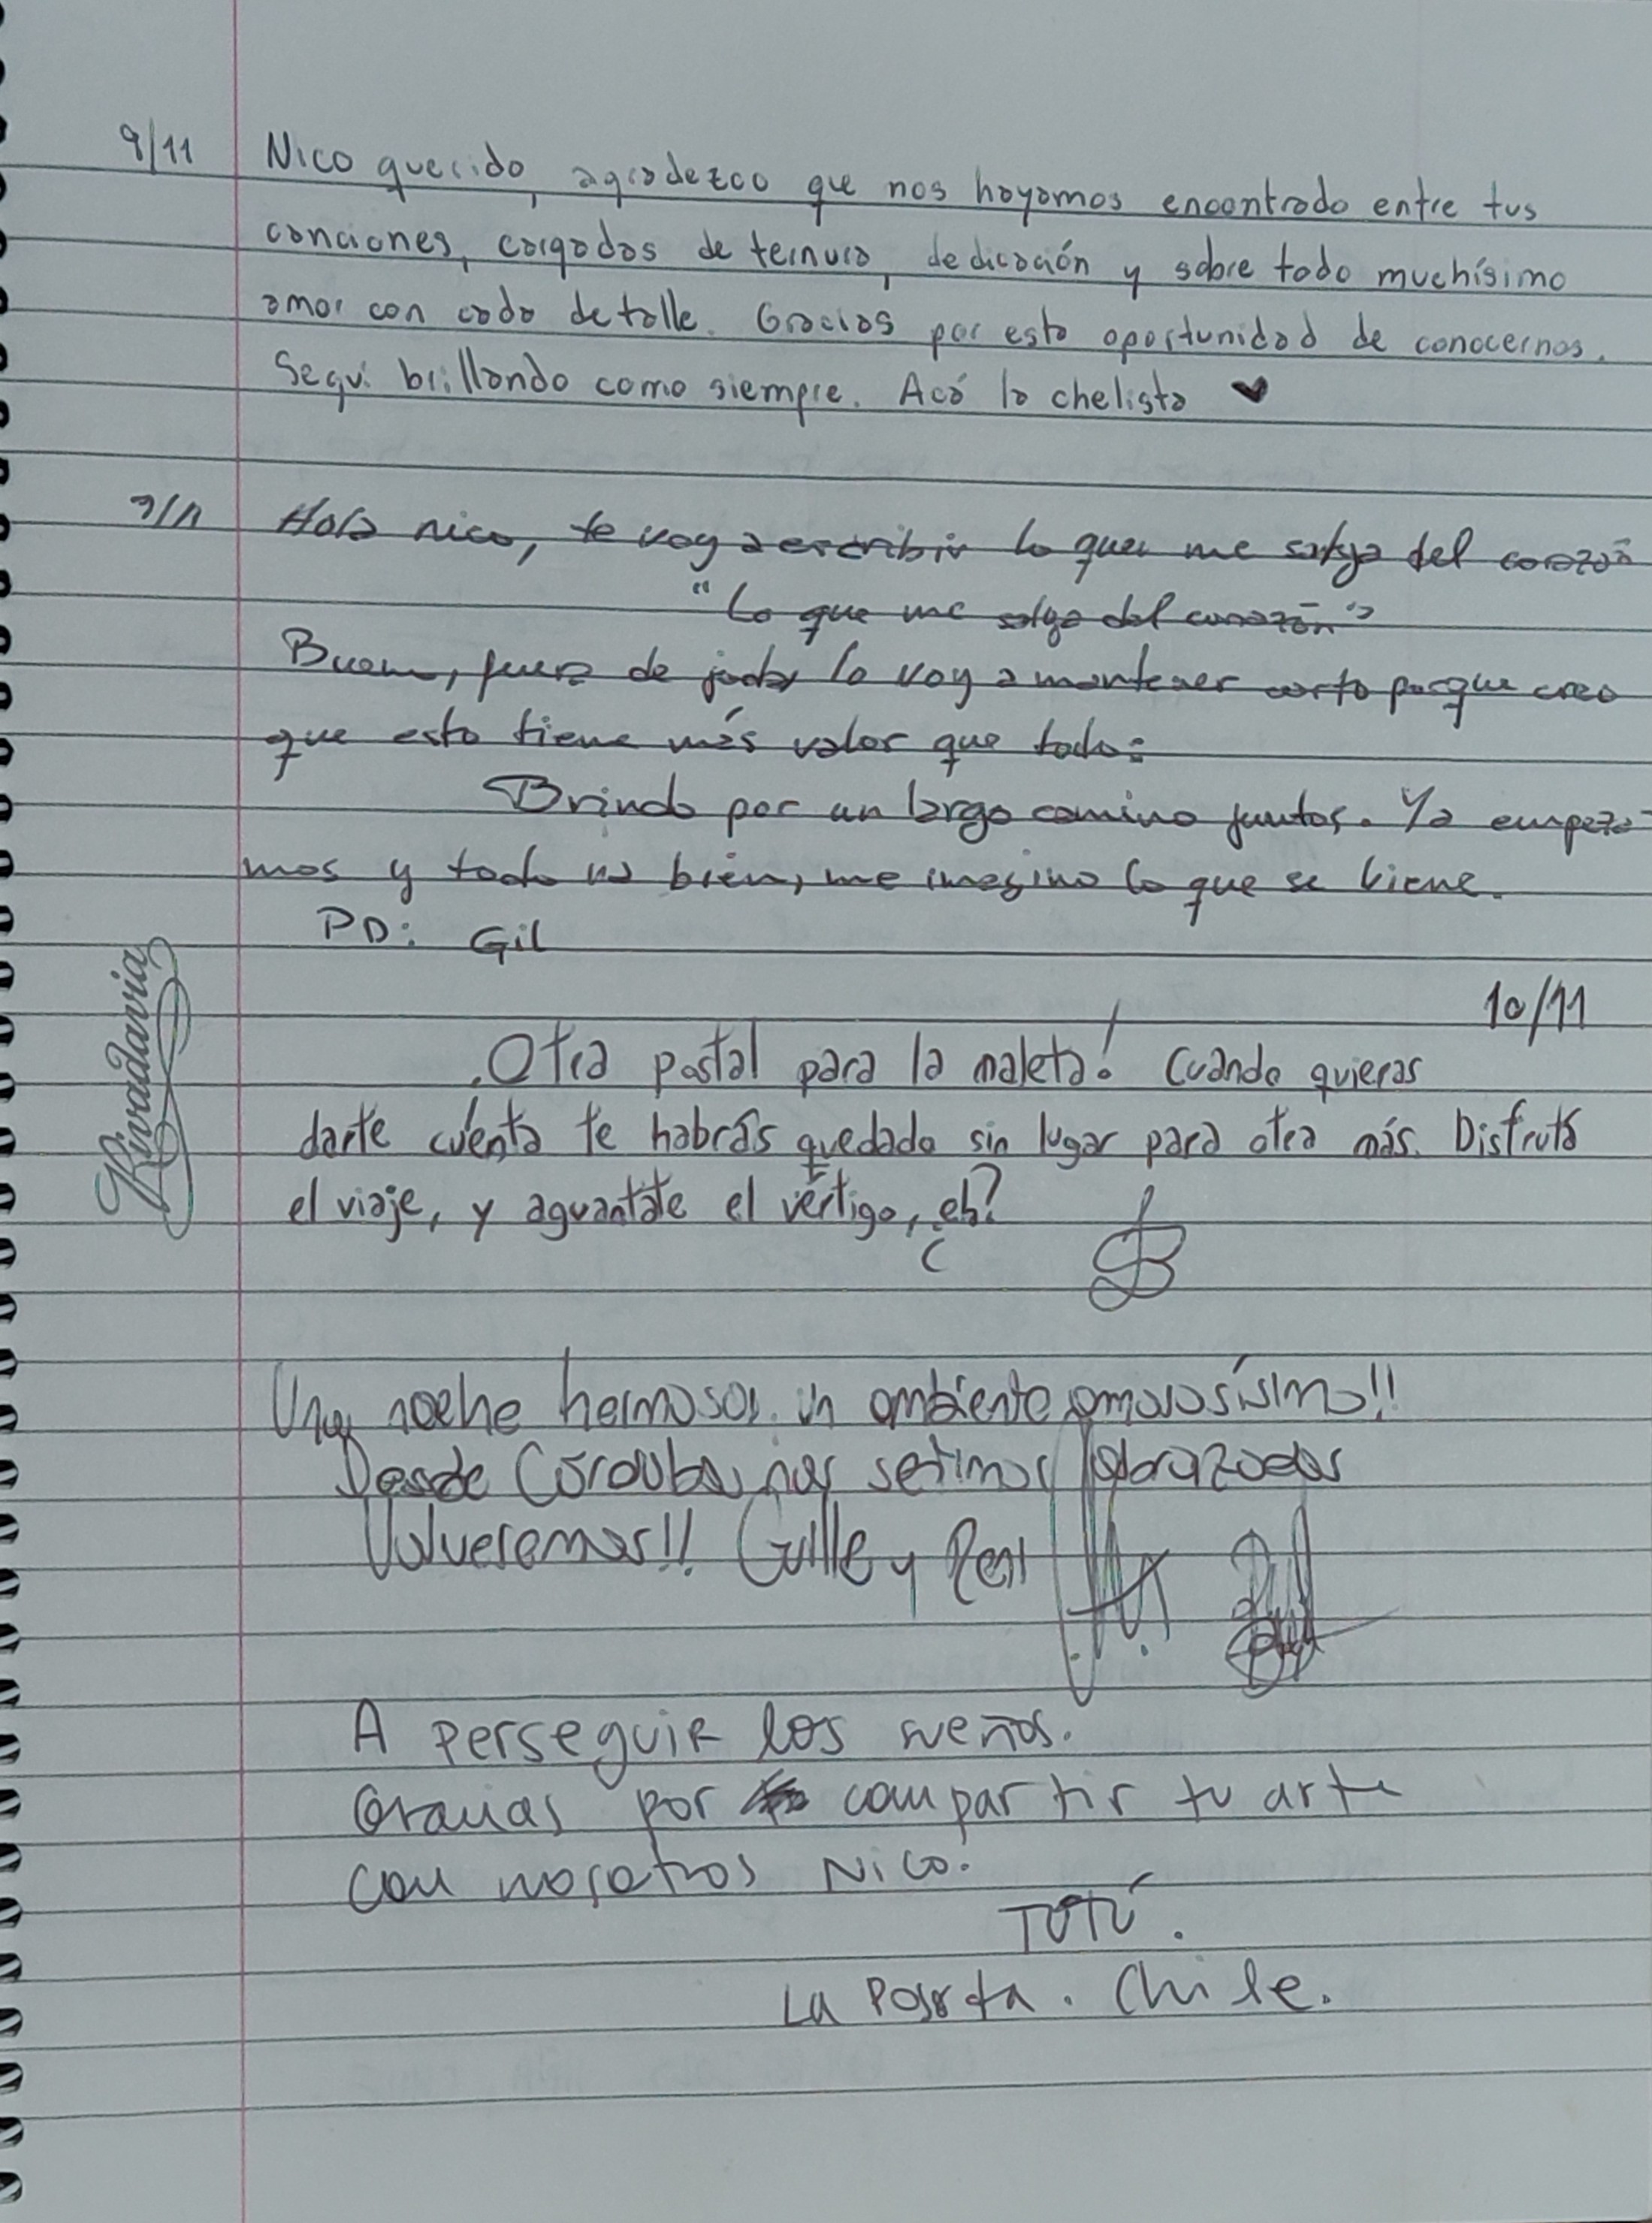 9/11 Nico querido, agradezco que nos hayamos encontrado entre tus
canciones, cargadas de ternura, dedicación y sobre todo muchísimo
amor con cada detalle. Gracias por esta oportunidad de conocernos.
Seguí brillando como siempre. Acá la chelista ♥
9/11 Hola nico, te voy a escribir lo que me salga del corazón
"Lo que me salga del corazón"
Bueno, fuera de joda, lo voy a mantener corto porque creo
que esto tiene más valor que todo:
Brindo por un largo camino juntos. Ya empeza-
mos y todo va bien, me imagino lo que se viene.
PD: Gil
Rivadavia
10/11
¡Otra postal para la maleta! Cuando quieras
darte cuenta te habrás quedado sin lugar para otra más. Disfrutá
el viaje, y aguantate el vértigo, ¿eh?
Una noche hermosa, un ambiente amorosísimo!!
Desde Córdoba, nos setimos abrazados
Volveremos!! Guille y
A perseguir los sueños.
Gracias por compartir tu arte
con nosotros Nico.
TUTÚ.
La Posta. Chile.